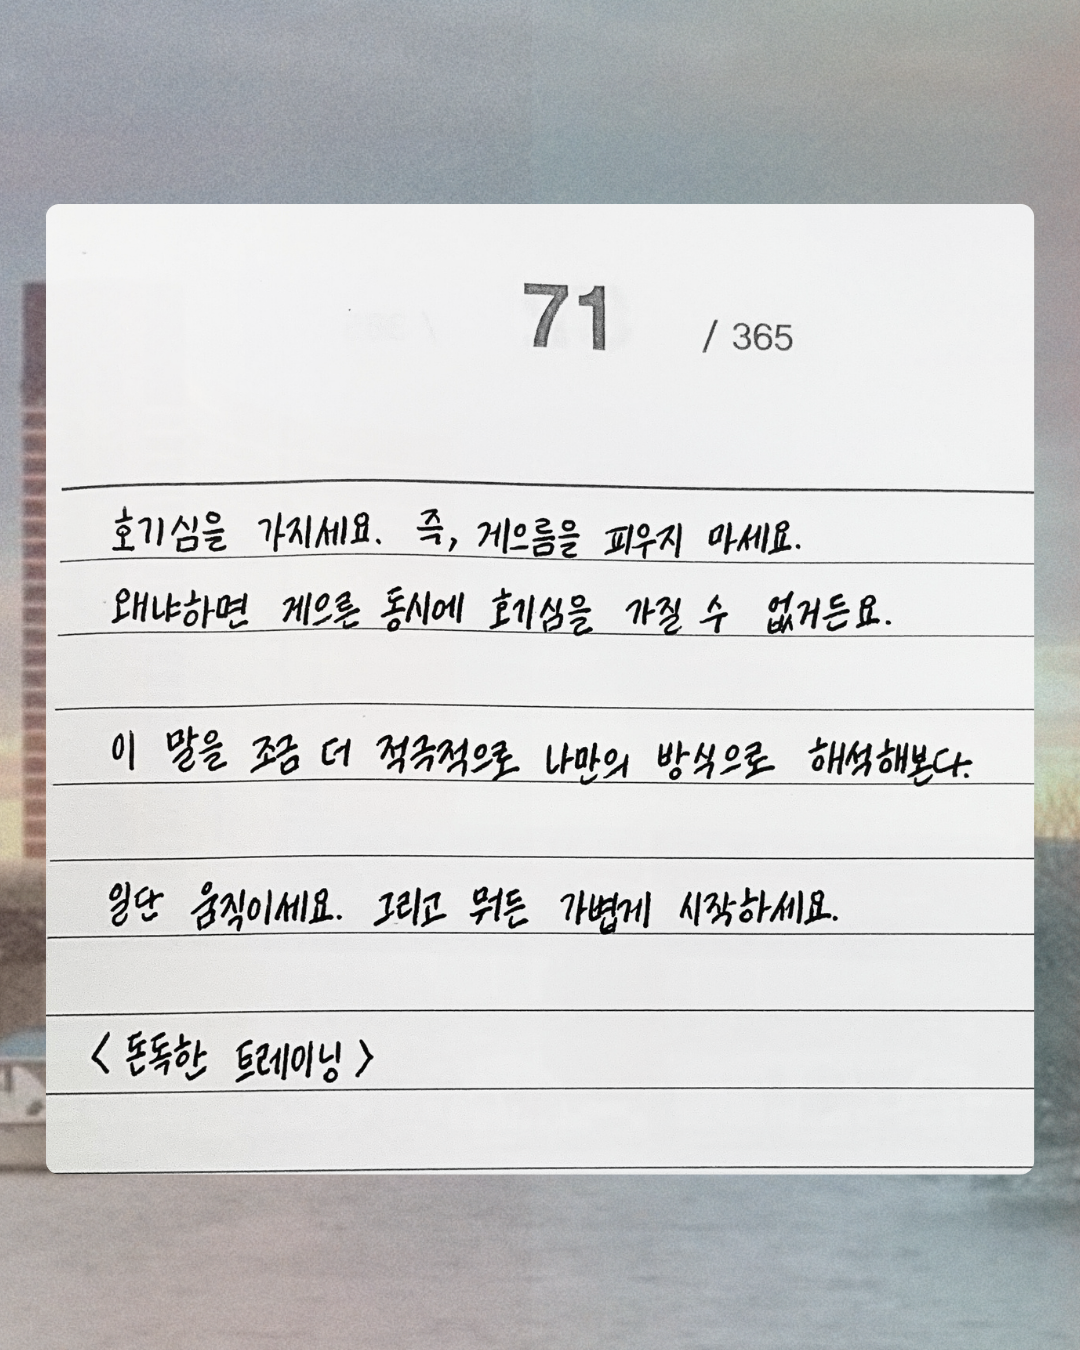 71 / 365
호기심을 가지세요. 즉, 게으름을 피우지 마세요.
왜냐하면 게으른 동시에 호기심을 가질 수 없거든요.
이 말을 조금 더 적극적으로 나만의 방식으로 해석해본다.
일단 움직이세요. 그리고 뭐든 가볍게 시작하세요.
<돈독한 트레이닝>